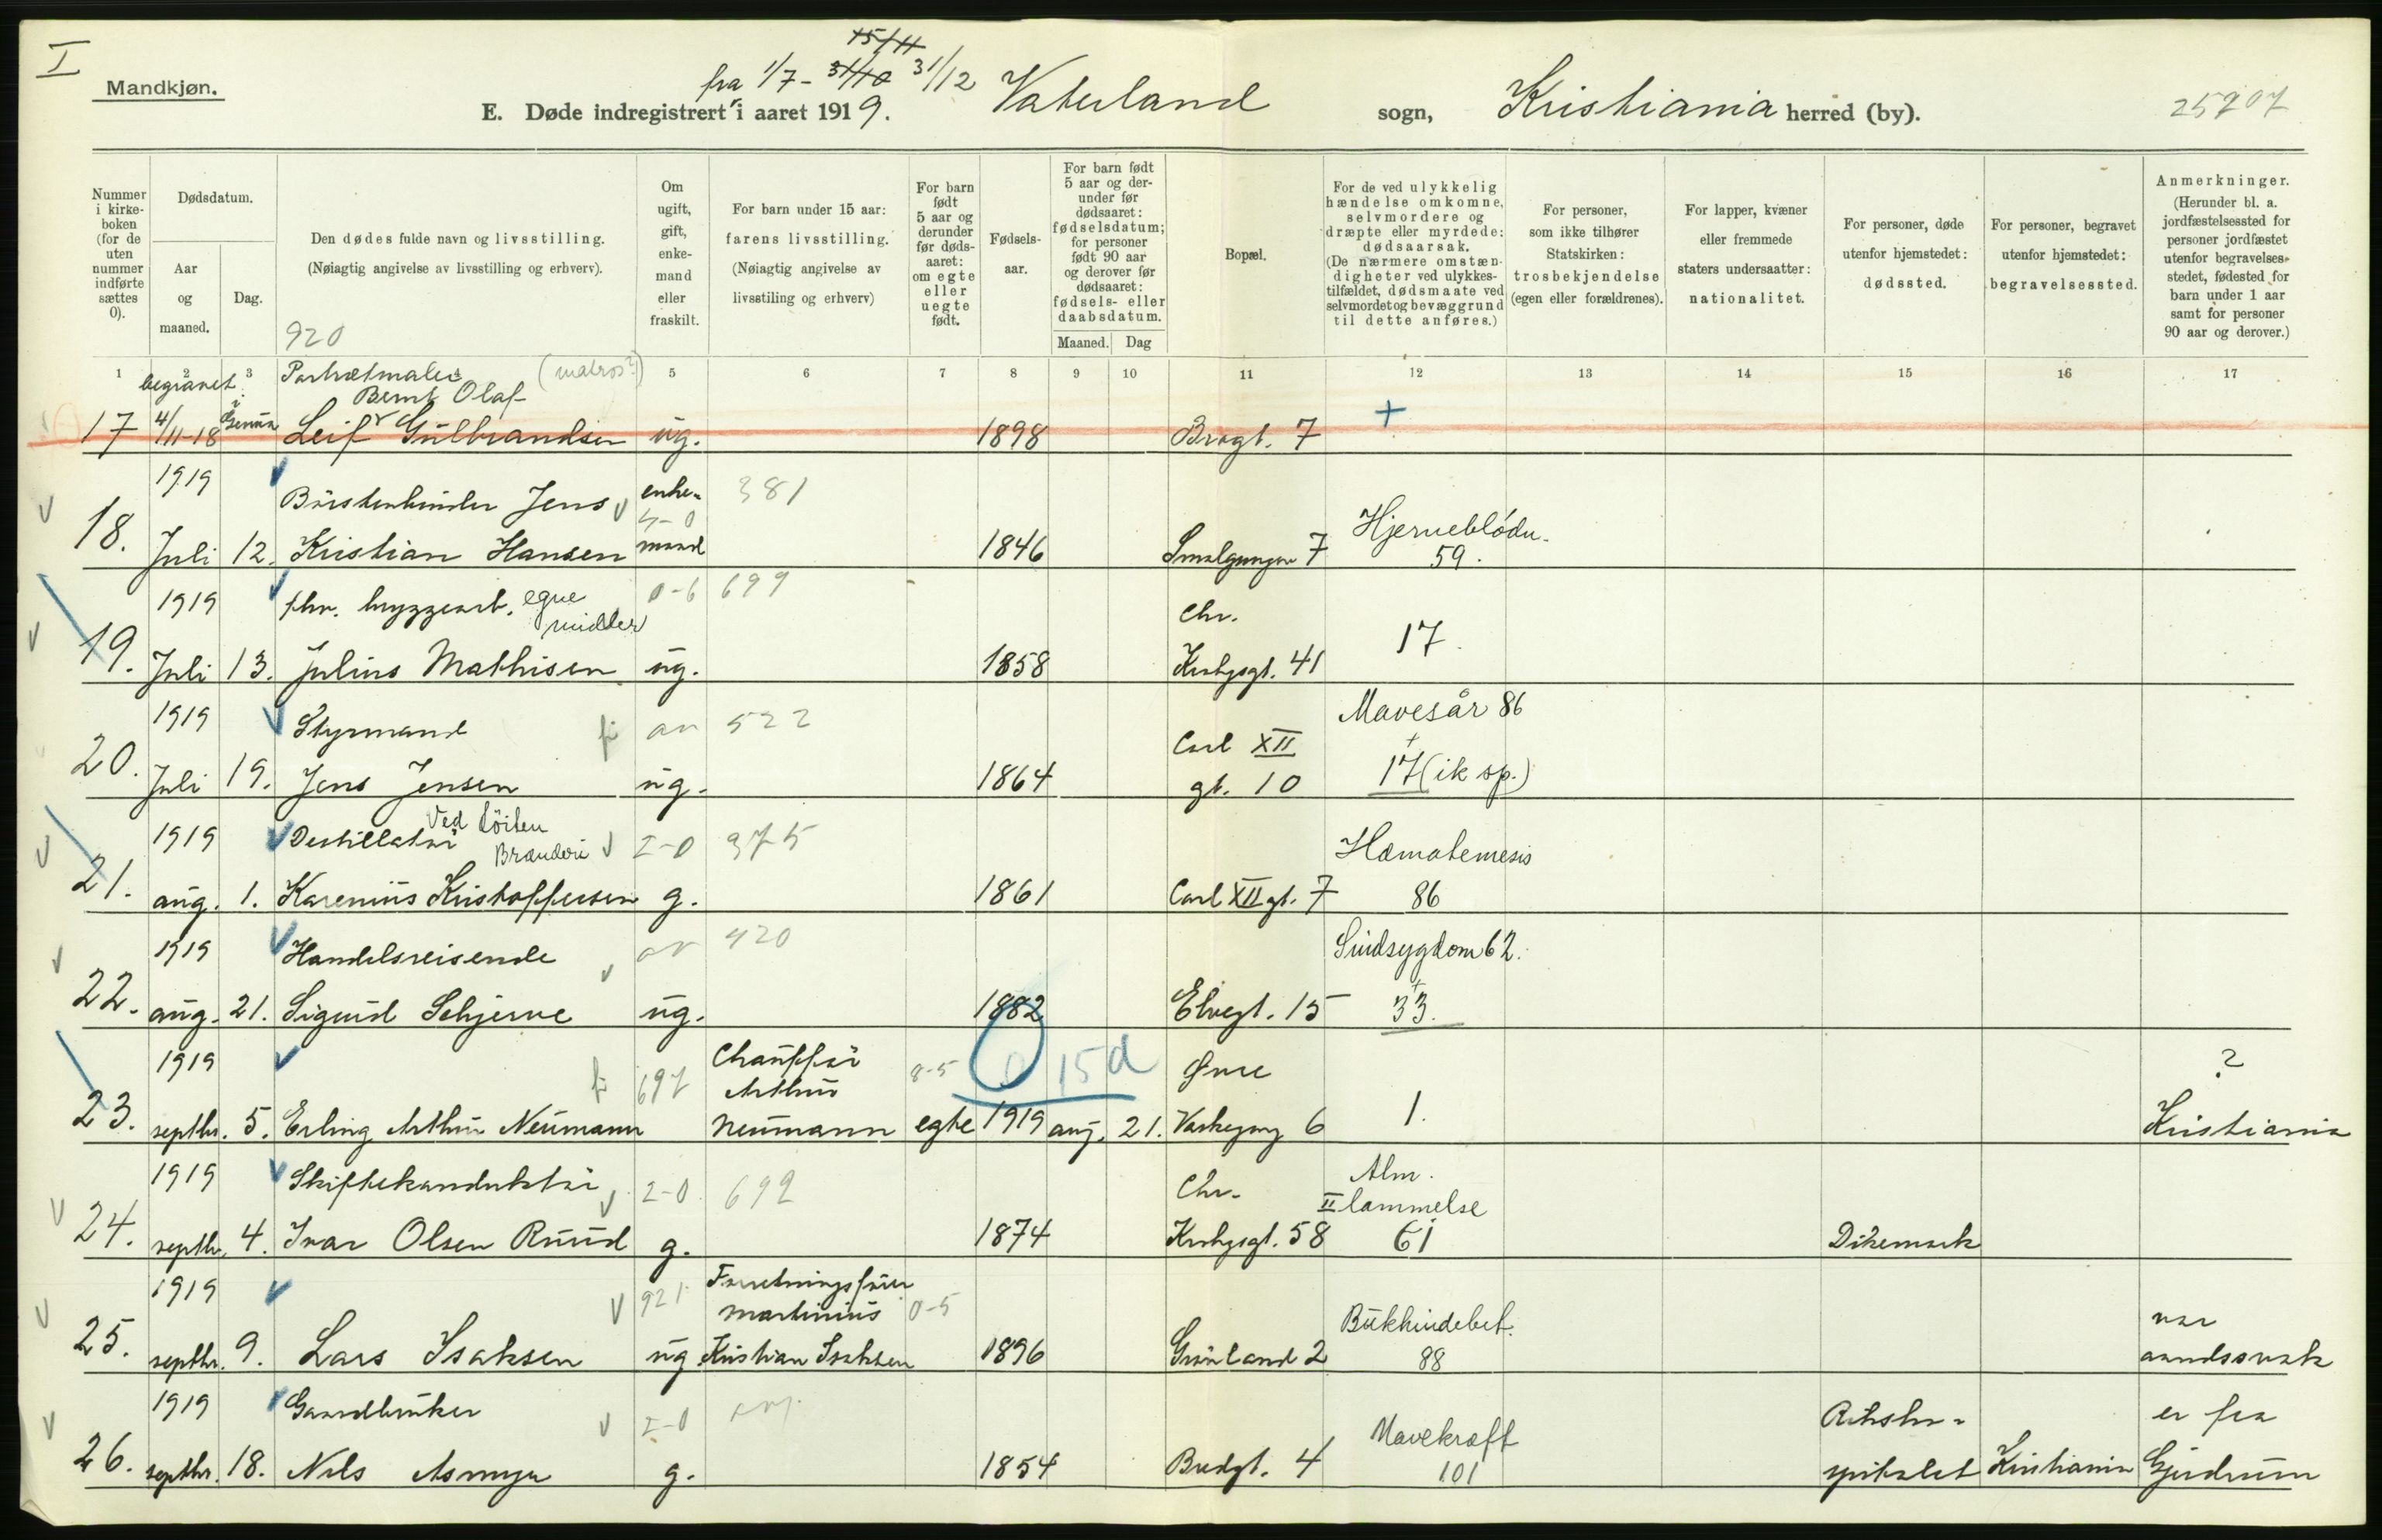 I
Mandkjøn.
fra 1/7 - 31/10 15/11 31/12
E. Døde indregistrert i aaret 1919. Vaterland sogn, Kristiania herred (by).
25707
Nummer i kirkeboken (for de uten nummer indførte sættes 0).
Dødsdatum.
Aar og maaned.
Dag.
Den dødes fulde navn og livsstilling.
(Nøiagtig angivelse av livsstilling og erhverv).
920
Om ugift, gift, enkemand eller fraskilt.
For barn under 15 aar: farens livsstilling.
(Nøiagtig angivelse av livsstiling og erhverv)
For barn født 5 aar og derunder før dødsaaret: om egte eller uegte født.
Fødselsaar.
For barn født 5 aar og derunder før dødsaaret: fødselsdatum; for personer født 90 aar og derover før dødsaaret: fødsels- eller daabsdatum.
Maaned. Dag
Bopæl.
For de ved ulykkelig hændelse omkomne, selvmordere og dræpte eller myrdede: dødsaarsak.
(De nærmere omstændigheter ved ulykkestilfældet, dødsmaate ved selvmordet og bevæggrund til dette anføres.)
For personer, som ikke tilhører Statskirken: trosbekjendelse (egen eller forældrenes).
For lapper, kvæner eller fremmede staters undersaatter: nationalitet.
For personer, døde utenfor hjemstedet: dødssted.
For personer, begravet utenfor hjemstedet: begravelsessted.
Anmerkninger.
(Herunder bl. a. jordfæstelsessted for personer jordfæstet utenfor begravelsesstedet, fødested for barn under 1 aar samt for personer 90 aar og derover.)
1 2 3 5 6 7 8 9 10 11 12 13 14 15 16 17
begravet i Genua
Portrætmaler (matros?)
Bernt Olaf
17 4/11-18 Leif Gulbrandsen ug. 1898 Brogt. 7 +
1919 Børstenbinder Jens enke- 381
4-0
18. Juli 12. Kristian Hansen mand 1846 Smalgangen 7 Hjerneblødn. 59.
1919 fhv. bryggearb. egne midler 0-6 699 Chr.
19. Juli 13. Julius Mathisen ug. 1858 Krohgsgt. 41 17.
1919 Styrmand an 522 Carl XII Mavesår 86
+
20. Juli 19. Jens Jensen ug. 1864 gt. 10 17 (ik sp.)
1919 Destillatør Ved Löiten Brænderi I-0 375 Hæmatemesis
21. aug. 1. Karenius Kristoffersen g. 1861 Carl XII gt. 7 86
1919 Handelsreisende 420 Sindsygdom 62.
+
22. aug. 21. Sigurd Schjerve ug. 1882 Elvegt. 15 33.
1919 fi 697 Chauffør Arthur 8-5 0 15 d Øvre ?
23. septbr. 5. Erling Arthur Neumann Neumann egte 1919 aug. 21. Vaskegang 6 1. Kristiania
1919 Skiftekonduktør I-0 692 Chr. Alm. lammelse
24. septbr. 4. Ivar Olsen Ruud g. 1874 Krohgsgt. 58 II 61 Dikemark
1919 921 Forretningsfører Martinius 0-5 Bukhindebet. var
25. septbr. 9. Lars Isaksen ug. Kristian Isaksen 1896 Grønland 2 88 aandssvak
1919 Gaardbruker I-0 Mavekræft Rikshos- er fra
26. septbr. 18. Nils g. 1854 Brugt. 4 101 pitalet Kristiania Gjerdrum